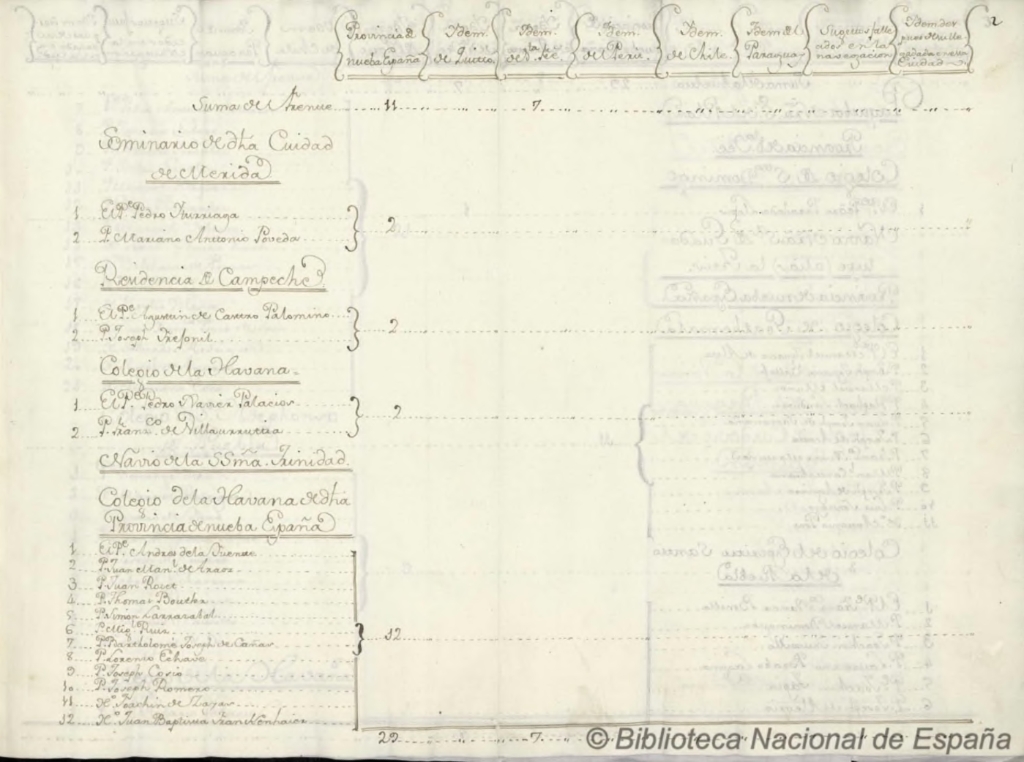 2
Provincia de nueba España
Ydem. de Quitto.
Ydem. de Sta. Fee.
Ydem. de Perú.
Ydem. de Chile.
Ydem del Paraguay
Sugettos falle cidos en la navegacion
Ydem des pues de su lle gada a esta Ciudad
Suma del frente 11 7
Seminario de dha Ciudad
de Merida
1 El Pe. Pedro Yturriaga
2 P. Mariano Antonio Poveda 2
Residencia de Campeche
1 El Pe. Agustin de Castro Palomino
2 P. Joseph Fresonil 2
Colegio de la Havana.
1 El Pe. Pedro Xavier Palacios
2 P. Franzco. de Villaurrutia 2
Návio de la SSma. Trinidad.
Colegio de la Havana de dha
Provincia de nueba España
1 El Pe. Andres de la Fuente
2 P. Juan Manl. de Araoz
3 P. Juan Roset
4 P. Thomas Boutler
5 P. Simon Larrazabal
6 P. Migl. Ruiz
7 P. Bartholome Joseph de Cañas 12
8 P. Lorenzo Echave
9 P. Joseph Cosio
10 P. Joseph Romero
11 Ho. Joachin de Zayas
12 Ho. Juan Baptista
29 7
© Biblioteca Nacional de España